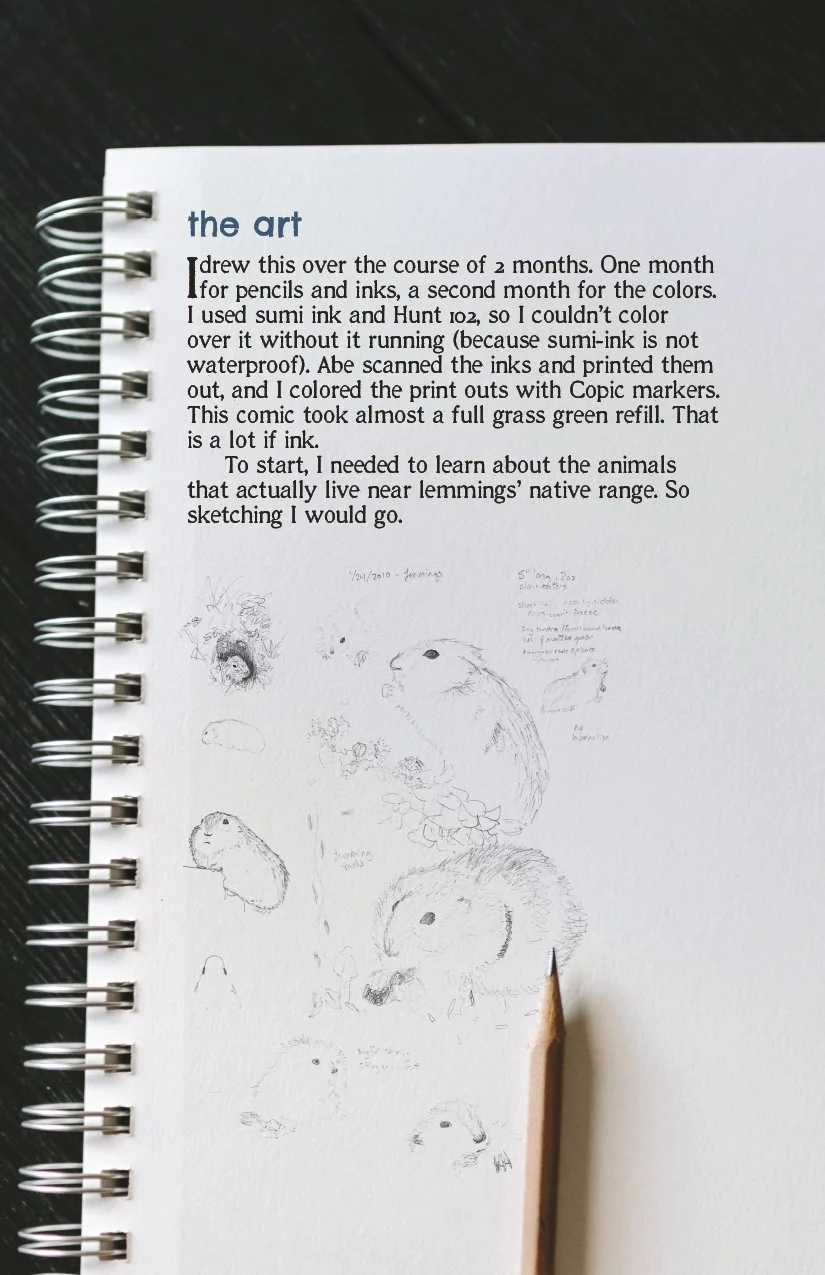 the art
I drew this over the course of 2 months. One month
for pencils and inks, a second month for the colors.
I used sumi ink and Hunt 102, so I couldn't color
over it without it running (because sumi-ink is not
waterproof). Abe scanned the inks and printed them
out, and I colored the print outs with Copic markers.
This comic took almost a full grass green refill. That
is a lot if ink.
To start, I needed to learn about the animals
that actually live near lemmings' native range. So
sketching I would go.
1/24/2010 - lemmings
5" long, 2oz
plant eaters